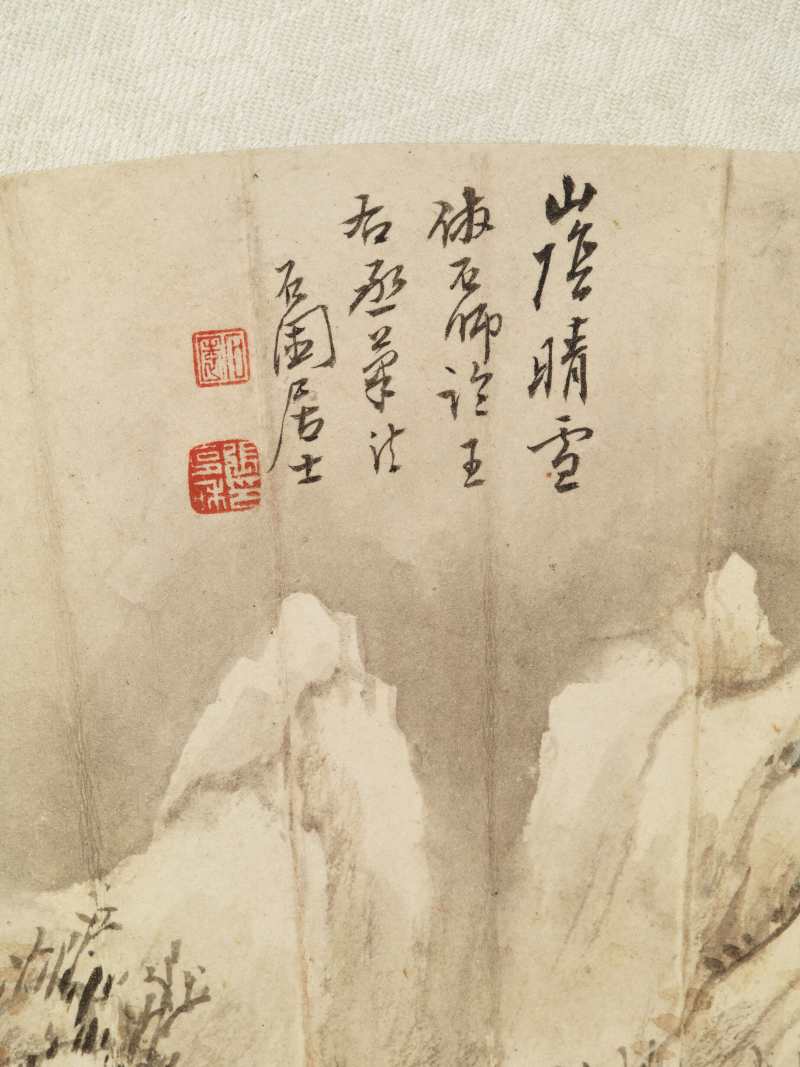 山陰晴雪
倣石師論王
右丞筆法
石園居士